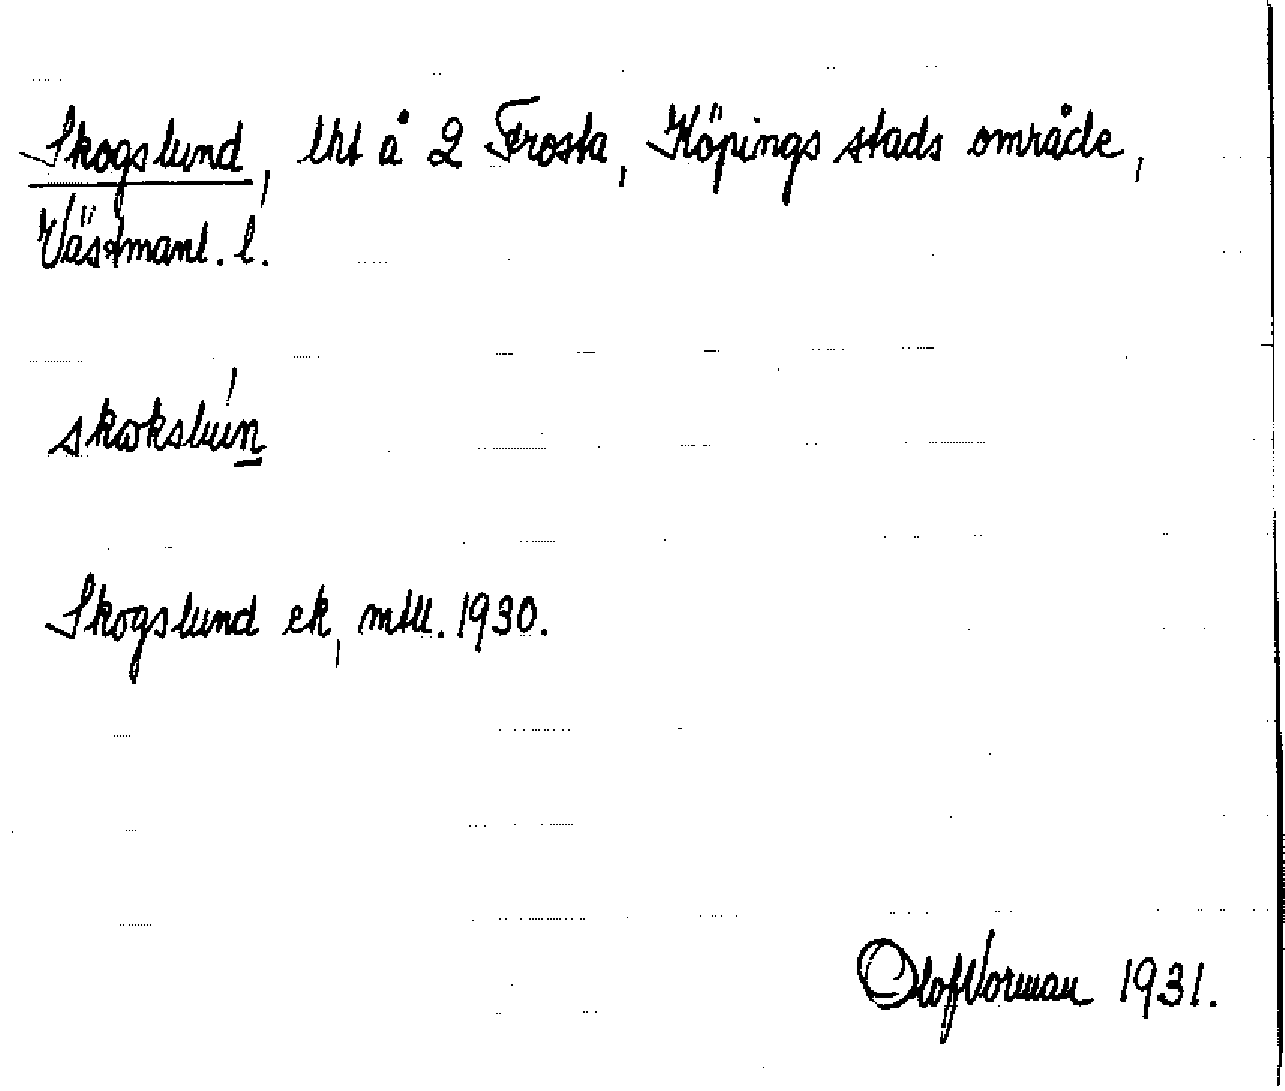 Skogslund, lht å 2 Frosta, Köpings stads område,
Västmanl. l.
skωkslún
Skogslund ek, mtll. 1930.
Olof Norman 1931.